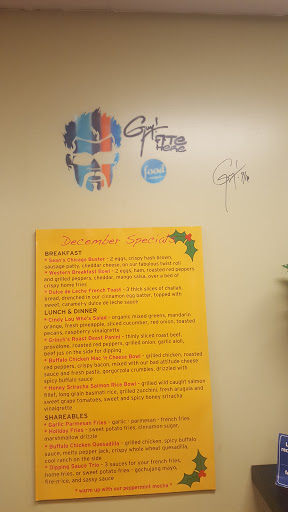 ATE
HERE
food
December Specials
BREAKFAST
* Sean's Chicago Buster - 2 eggs, crispy hash brown,
sausage patty, cheddar cheese, on our fabulous twist roll
* Western Breakfast Bowl - 2 eggs, ham, roasted red peppers
and grilled peppers, cheddar, mango salsa, over a bed of
crispy home fries
* Dulce de Leche French Toast - 3 thick slices of challah
bread, drenched in our cinnamon egg batter, topped with
sweet, caramel-y dulce de leche sauce
LUNCH & DINNER
* Cindy Lou Who's Salad - organic mixed greens, mandarin
orange, fresh pineapple, sliced cucumber, red onion, toasted
pecans, raspberry vinaigrette
* Grinch's Roast Beast Panini - thinly sliced roast beef,
provolone, roasted red peppers, grilled onion, garlic aioli,
beef jus on the side for dipping
* Buffalo Chicken Mac 'n Cheese Bowl - grilled chicken, roasted
red peppers, crispy bacon, mixed with our bad attitude cheese
sauce and fresh pasta, gorgonzola crumbles, drizzled with
spicy buffalo sauce
* Honey Sriracha Salmon Rice Bowl - grilled wild caught salmon
filet, long grain basmati rice, grilled zucchini, fresh arugula and
sweet grape tomatoes, sweet and spicy honey sriracha
vinaigrette
SHAREABLES
* Garlic Parmesan Fries - garlic - parmesan - french fries
* Holiday Fries - sweet potato fries, cinnamon sugar,
marshmallow drizzle
* Buffalo Chicken Quesadilla - grilled chicken, spicy buffalo
sauce, melty pepper jack, crispy whole wheat quesadilla,
cool ranch on the side
* Dipping Sauce Trio - 3 sauces for your french fries,
home fries, or sweet potato fries - gochujang mayo,
fire-n-rice, and sassy sauce
* warm up with our peppermint mocha *